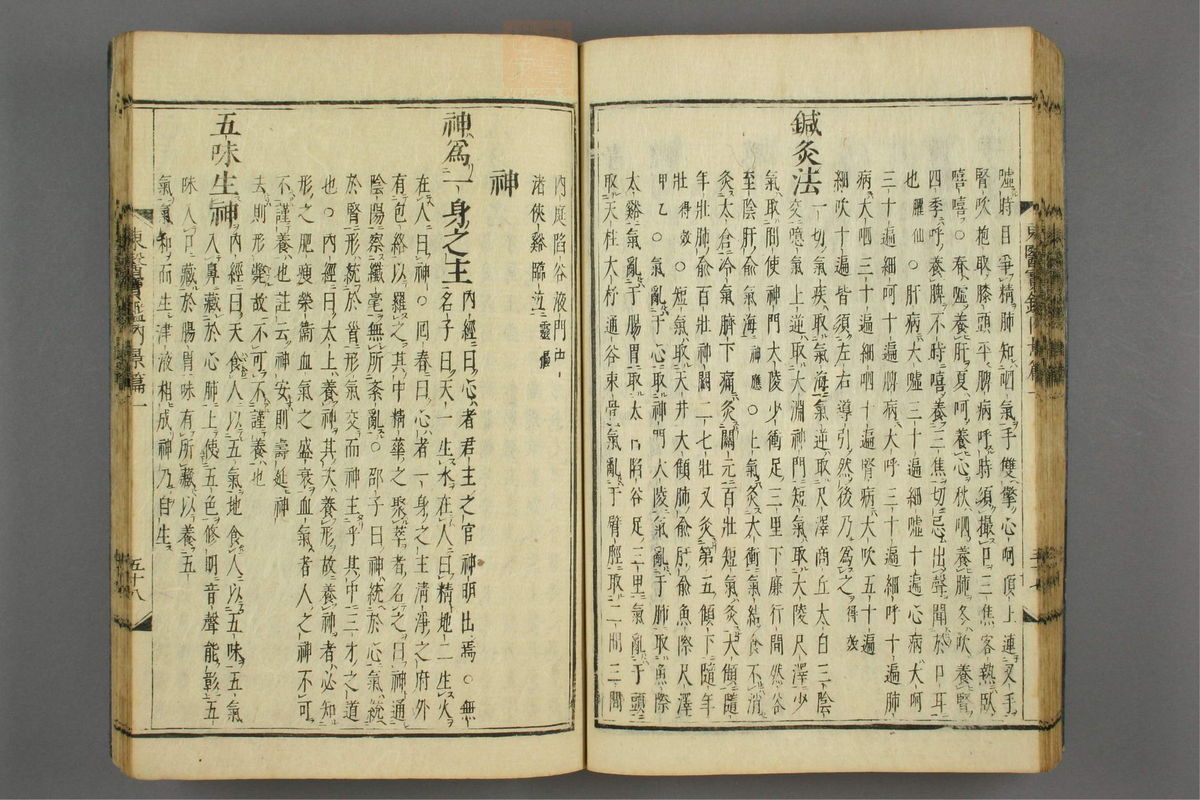 噓時目爭精肺知呬氣手雙擎心呵頂上連叉手
腎吹抱取膝頭平脾病呼時須撮口三焦客熱臥
嘻嘻○春噓養肝夏呵養心秋呬養肺冬吹養腎
四季呼養脾不時嘻養三焦切忌出聲聞於口耳
也臞仙○肝病大噓三十遍細噓十遍心病大呵
三十遍細呵十遍脾病大呼三十遍細呼十遍肺
病大呬三十遍細呬十遍腎病大吹五十遍
細吹十遍皆須左右導引然後乃為之得效
鍼灸法一切氣疾取氣海氣逆取尺澤商丘太白三陰
交噫氣上逆取大淵神門短氣取大陵尺澤少
氣取間使神門大陵少衝足三里下廉行間然谷
至陰肝俞氣海神應○上氣灸太衝氣結食不消
灸太倉冷氣臍下痛灸關元百壯短氣灸大傾隨
年壯肺俞百壯神闕二七壯又灸第五傾下隨年
壯得效○短氣取天井大傾肺俞肝俞魚際尺澤
甲乙○氣亂于心取神門大陵氣亂于肺取魚際
太谿氣亂于腸胃取太白陷谷足三里氣亂于頭
取天柱大杼通谷束骨氣亂于臂脛取二間三間
內庭陷谷液門中
渚俠谿臨泣靈樞
神
神為一身之主內經曰心者君主之官神明出焉○無
名子曰天一生水在人曰精地二生火
在人曰神○回春曰心者一身之主清淨之府外
有包絡以羅之其中精華之聚萃者名之曰神通
陰陽察纖毫無所紊亂○邵子曰神統於心氣統
於腎形統於首形氣交而神主乎其中三才之道
也○內經曰太上養神其次養形故養神者必知
形之肥瘦榮衛血氣之盛衰血氣者人之神不可
不謹養也註云神安則壽延神
去則形弊故不可不謹養也
五味生神內經曰天食人以五氣地食人以五味五氣
入鼻藏於心肺上使五色修明音聲能彰五
味入口藏於腸胃味有所藏以養五
氣氣和而生津液相成神乃自生
東醫寶鑑內景篇一
五十八